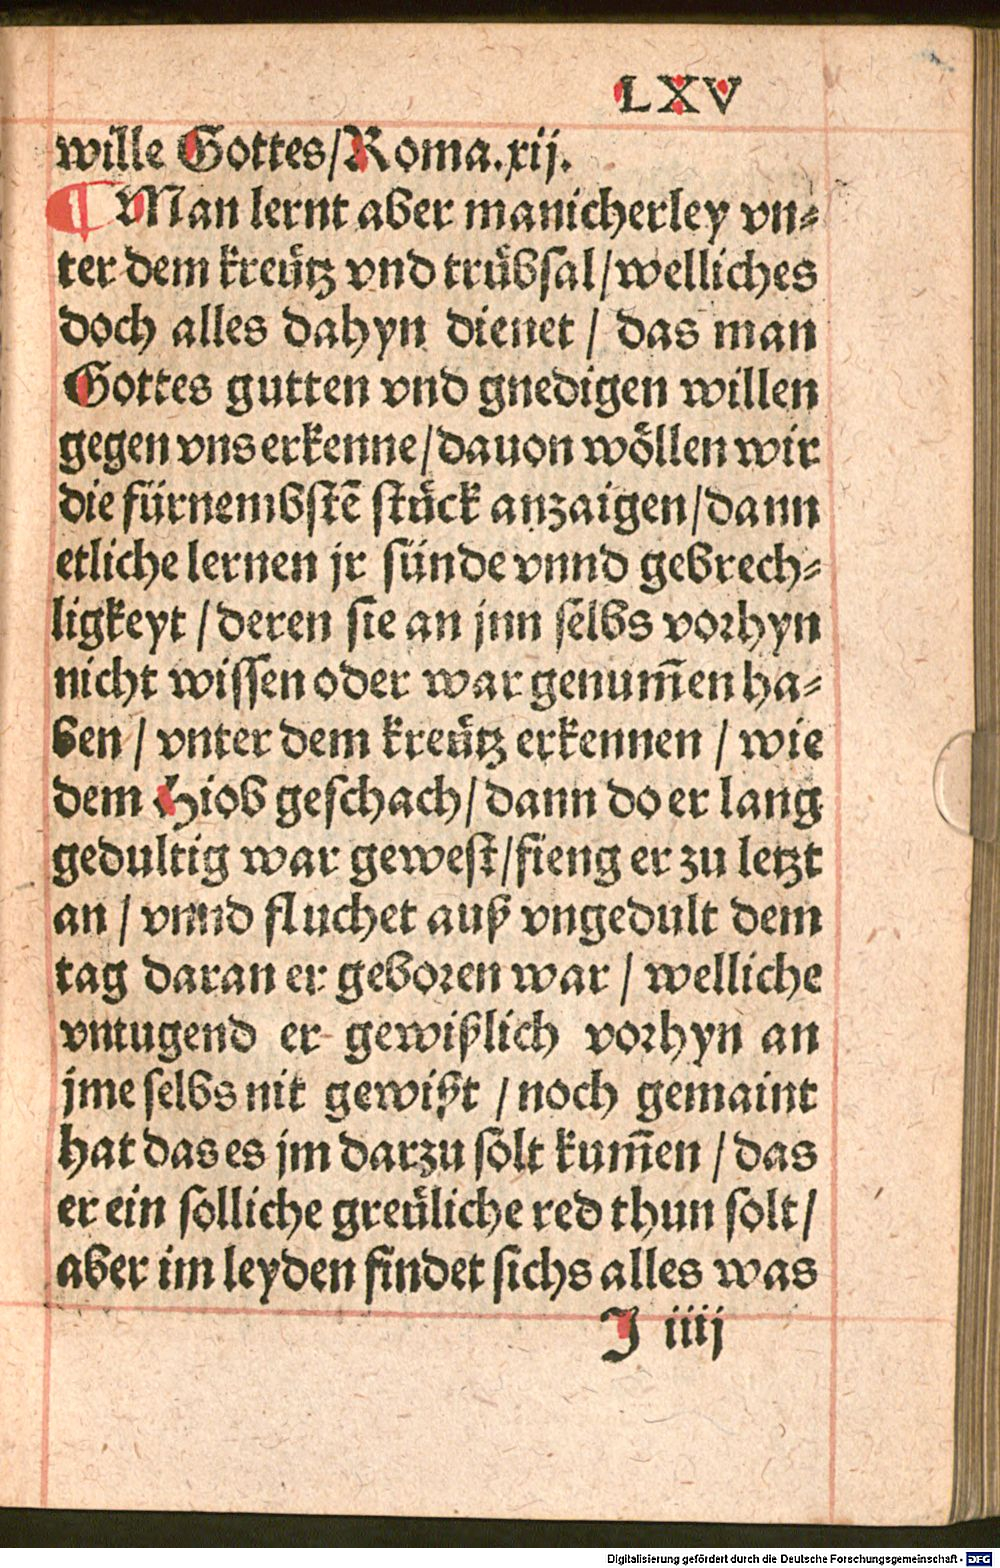 LXV
wille Gottes/Roma.xij.
¶ Man lernt aber manicherley vn⸗
ter dem kreütz vnd trübsal/welliches
doch alles dahyn dienet / das man
Gottes gutten vnd gnedigen willen
gegen vns erkenne/dauon wöllen wir
die fürnembstē stück anzaigen/dann
etliche lernen jr sünde vnnd gebrech⸗
ligkeyt / deren sie an jnn selbs vorhyn
nicht wissen oder war genum̄en ha⸗
ben / vnter dem kreütz erkennen / wie
dem Hiob geschach/ dann do er lang
gedultig war gewest/fieng er zu letzt
an / vnnd fluchet auß vngedult dem
tag daran er geboren war / welliche
vntugend er gewißlich vorhyn an
jme selbs nit gewißt / noch gemaint
hat das es jm darzu solt kum̄en / das
er ein solliche greüliche red thun solt/
aber im leyden findet sichs alles was
J iiij
Digitalisierung gefördert durch die Deutsche Forschungsgemeinschaft - DFG